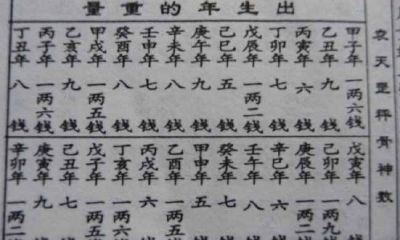 出生年的重量
袁天罡秤骨神數
甲子年 一两六錢
乙丑年 九 錢
丙寅年 六 錢
丁卯年 七 錢
戊辰年 一两二錢
己巳年 五 錢
庚午年 九 錢
辛未年 八 錢
壬申年 七 錢
癸酉年 八 錢
甲戌年 一两五錢
乙亥年 九 錢
丙子年 一两六錢
丁丑年 八 錢
戊寅年 八
己卯年 一两九
庚辰年 一两
辛巳年 六
壬午年 八
癸未年 七
甲申年 五
乙酉年 一两五
丙戌年 六
丁亥年 一两六
戊子年 一两五
己丑年 七
庚寅年 九
辛卯年 一两二